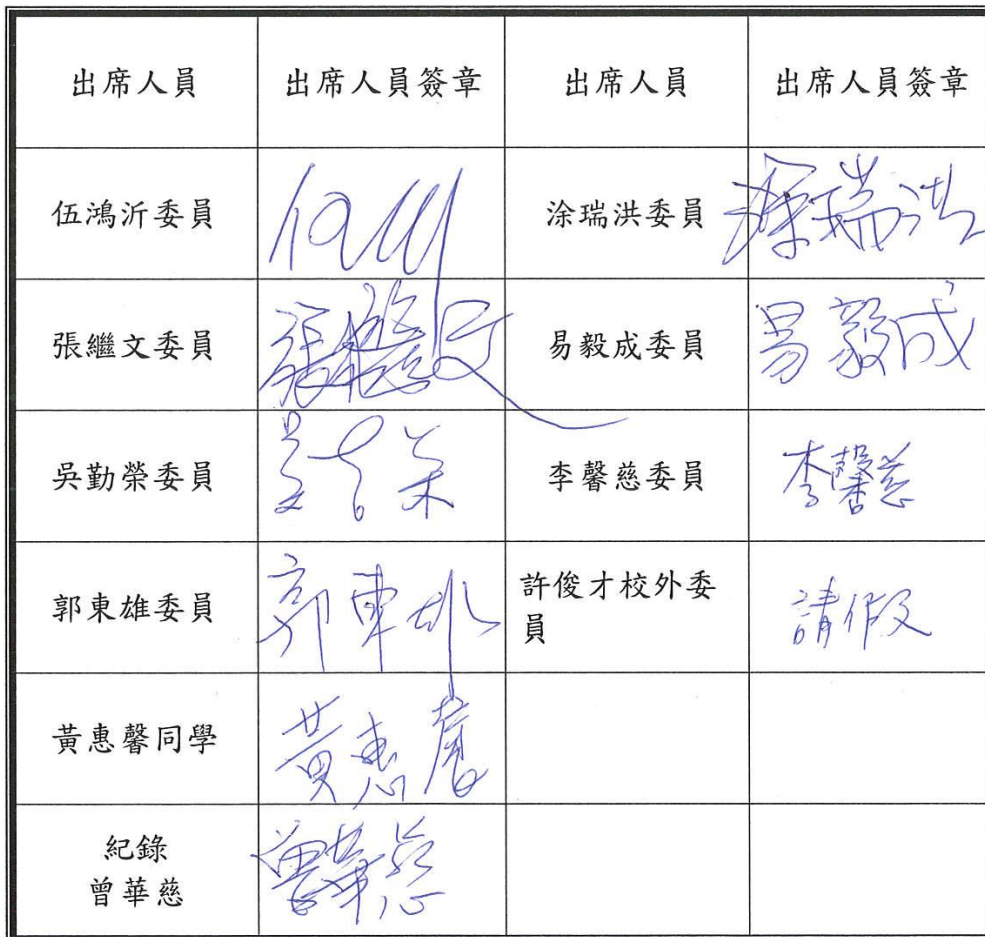 出席人員 出席人員簽章 出席人員 出席人員簽章
伍鴻沂委員 涂瑞洪委員 涂瑞洪
張繼文委員 張繼文 易毅成委員 易毅成
吳勤榮委員 李馨慈委員 李馨慈
郭東雄委員 郭東雄 許俊才校外委
員 請假
黃惠馨同學 黃惠馨
紀錄
曾華慈 曾華慈